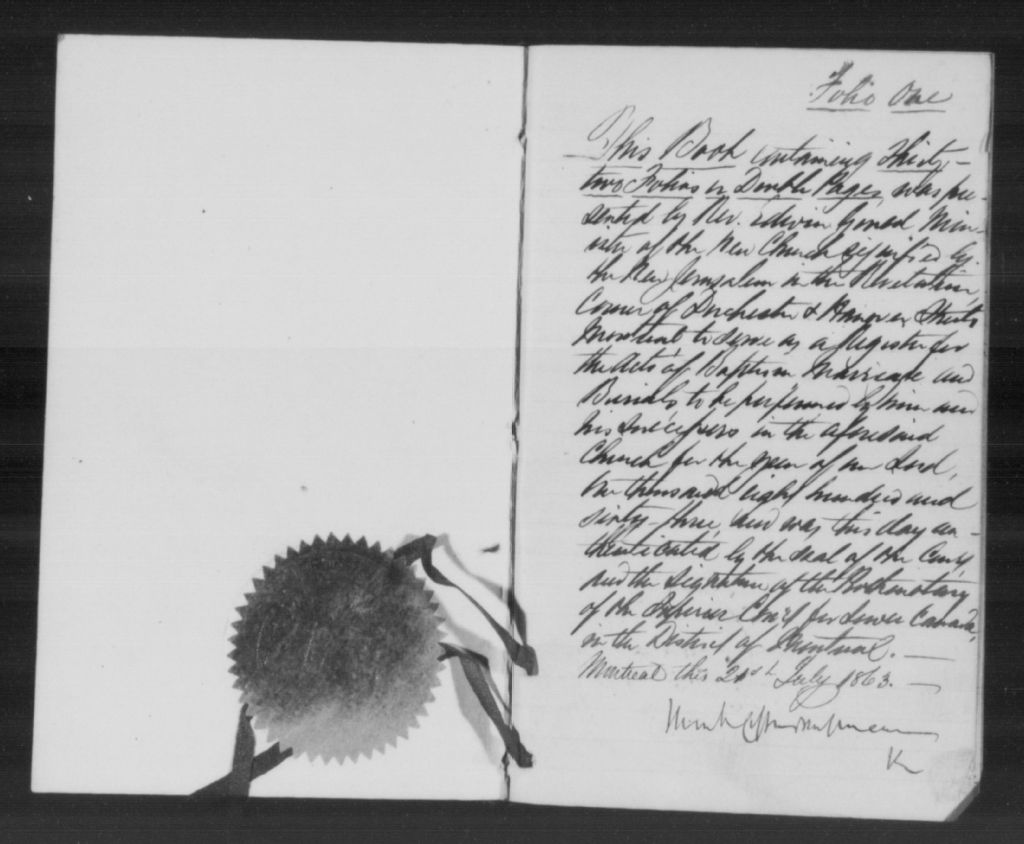 Folio One
This Book containing Thirty-
two Folios or Double Pages, was pre-
sented by Rev. Edwin Gould, Min-
ister of the New Church signified by
the New Jerusalem in the Revelation,
Corner of Dorchester & Hanover Streets
Montreal to serve as a Register for
the Acts of Baptism Marriage and
Burials to be performed by him and
his Successors in the aforesaid
Church for the year of our Lord,
one thousand eight hundred and
sixty-three, and was this day au-
thenticated by the seal of the Court
and the Signature of the Prothonotary
of the Superior Court for Lower Canada,
in the District of Montreal.
Montreal this 21st July 1863.